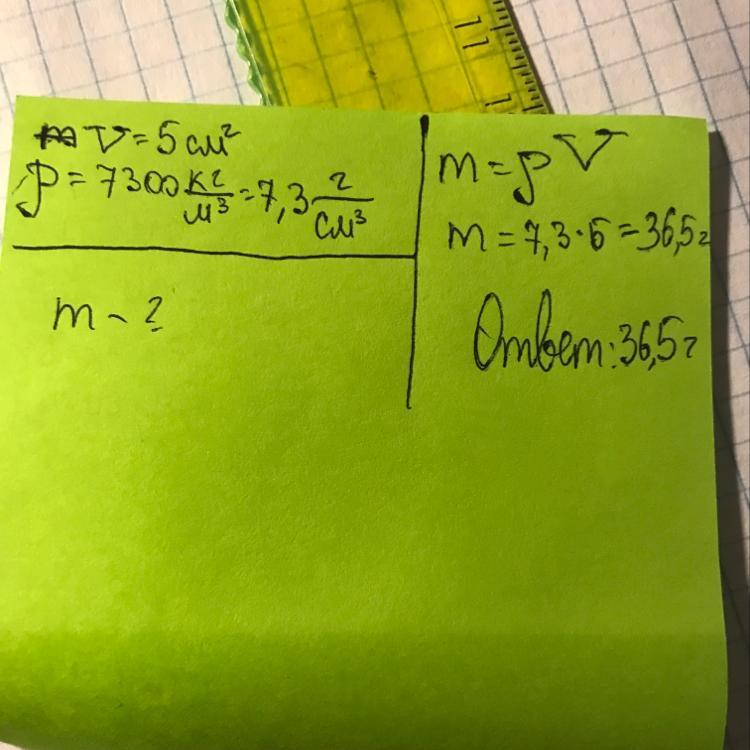 V = 5 см²
ρ = 7300 кг/м³ = 7,3 г/см³
m - ?
m = ρV
m = 7,3 · 5 = 36,5 г
Ответ: 36,5 г
11